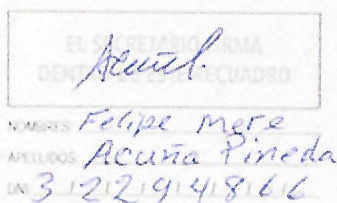 EL SECRETARIO FIRMA
DENTRO DE ESTE RECUADRO
NOMBRES Felipe Mere
APELLIDOS: Acuña Pineda
DNI: 32294866